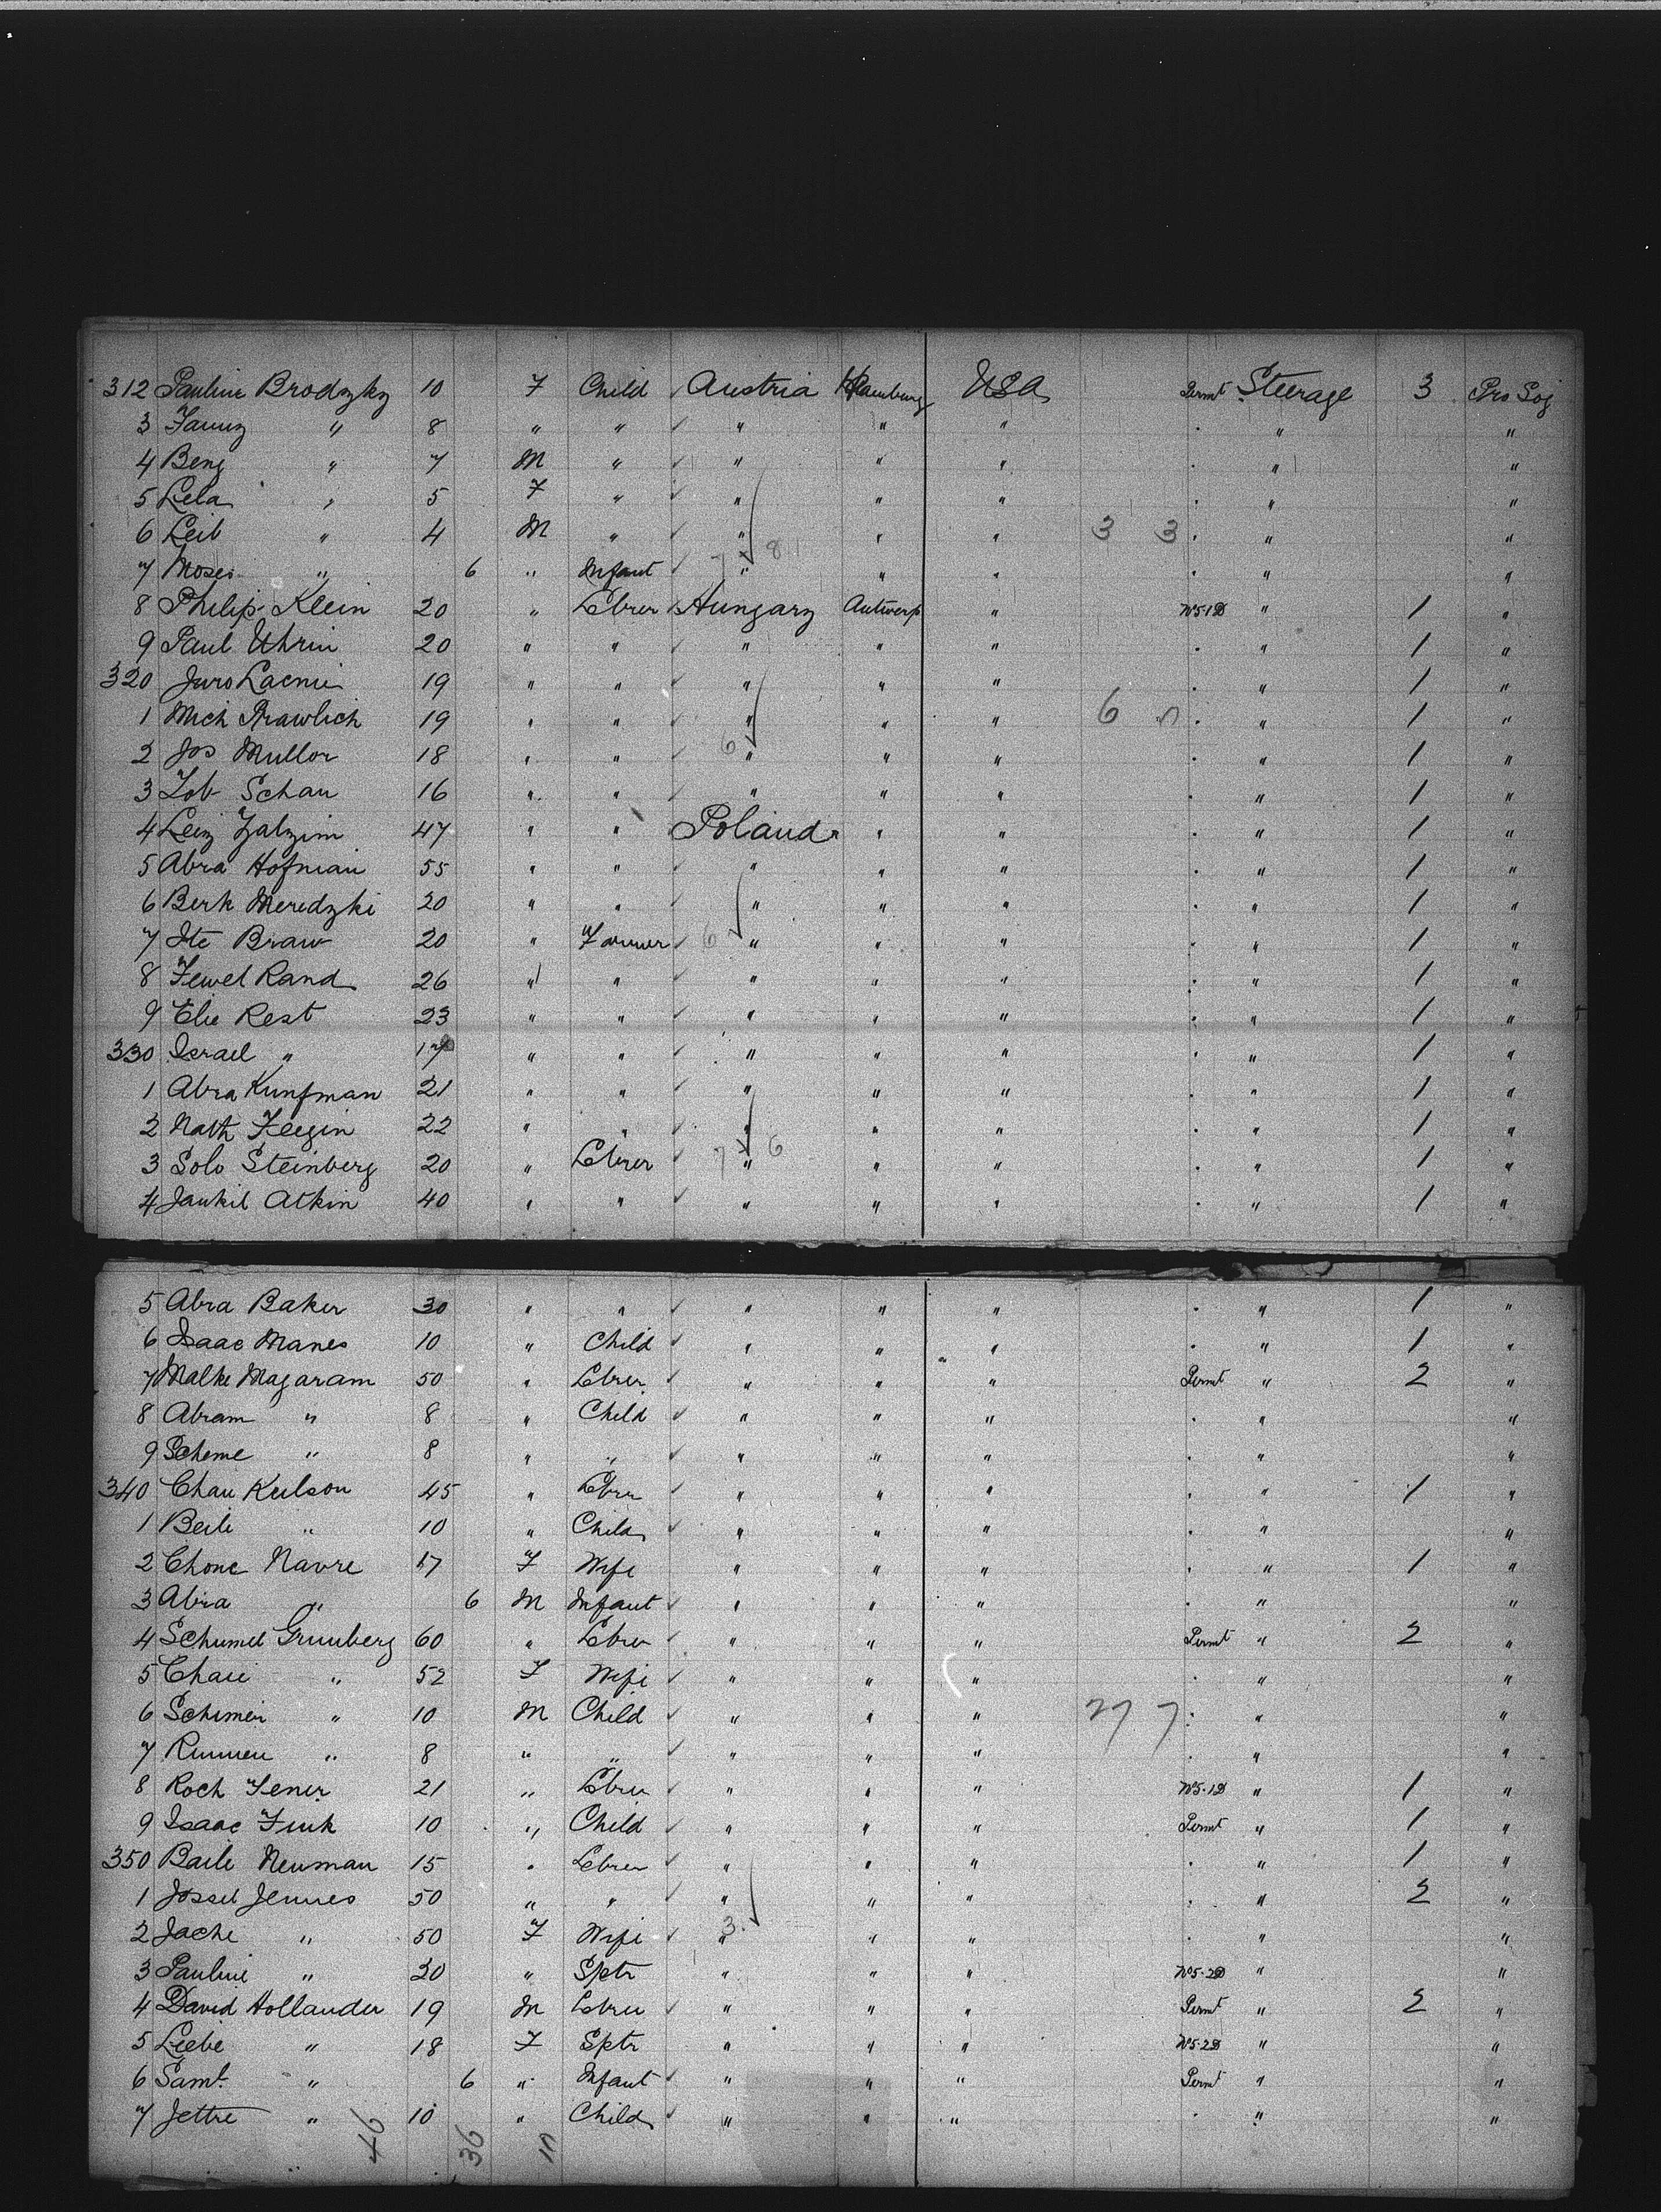 312 Pauline Brodzky 10 F Child Austria Hamburg USA Permt Steerage 3 Pro Soj
3 Fanny " 8 " " " " " " "
4 Benj " 7 M " " " " " "
5 Lela " 5 F " " " " " "
6 Leib " 4 M " " " " 3 3 " "
7 Moses " 6 " Infant " " " " "
8 Philip Klein 20 " Lbrer Hungary Antwerp " No5.1D " 1 "
9 Paul Uhrin 20 " " " " " " 1 "
320 Juro Lacnie 19 " " " " " " 1 "
1 Mich Prawlich 19 " " " " " 6 " 1 "
2 Jos Mullor 18 " " 6 " " " " 1 "
3 Tob Schan 16 " " " " " " 1 "
4 Leiz Zalzim 47 " " Poland " " " 1 "
5 Abra Hofman 55 " " " " " " 1 "
6 Berk Meredzki 20 " " " " " " 1 "
7 Ite Braw 20 " Farmer 6 " " " " 1 "
8 Fewel Rand 26 " " " " " " 1 "
9 Elie Rest 23 " " " " " " 1 "
330 Israel " 17 " " " " " " 1 "
1 Abra Kunfman 21 " " " " " " 1 "
2 Nath Feegin 22 " " " " " " 1 "
3 Solo Steinberg 20 " Lbrer 7 " 6 " " " 1 "
4 Jankil Atkin 40 " " " " " " 1 "
5 Abra Baker 30 " " " " " " 1 "
6 Isaac Manes 10 " Child " " " " 1 "
7 Malke Magaram 50 " Lbrer " " " Permt " 2 "
8 Abram " 8 " Child " " " " "
9 Scheme " 8 " " " " " " "
340 Chau Keilson 45 " Lbrer " " " " 1 "
1 Beili " 10 " Child " " " " "
2 Chone Navre 17 F Wife " " " " 1 "
3 Abra " 6 M Infant " " " " "
4 Schumel Grunberg 60 " Lbrer " " " Permt " 2 "
5 Chaie " 52 F Wife " " " " "
6 Schimen " 10 M Child " " " 27 7 " "
7 " 8 " " " " " " "
8 Roch Jener 21 " Lbrer " " " No5.1D " 1 "
9 Isaac Fink 10 " Child " " " Permt " 1 "
350 Baile Neuman 15 " Lbrer " " " " 1 "
1 Jossel Jennes 50 " " " " " " 2 "
2 Jache " 50 F Wife 3 " " " " "
3 Pauline " 20 " Sptr " " " No5.2D " "
4 David Hollander 19 M Lbrer " " " Permt " 2 "
5 Liebe " 18 F Sptr " " " No5.2D " "
6 Saml " 6 " Infant " " " Permt " "
7 Jettre " 10 " Child " " " " "
46 36 10